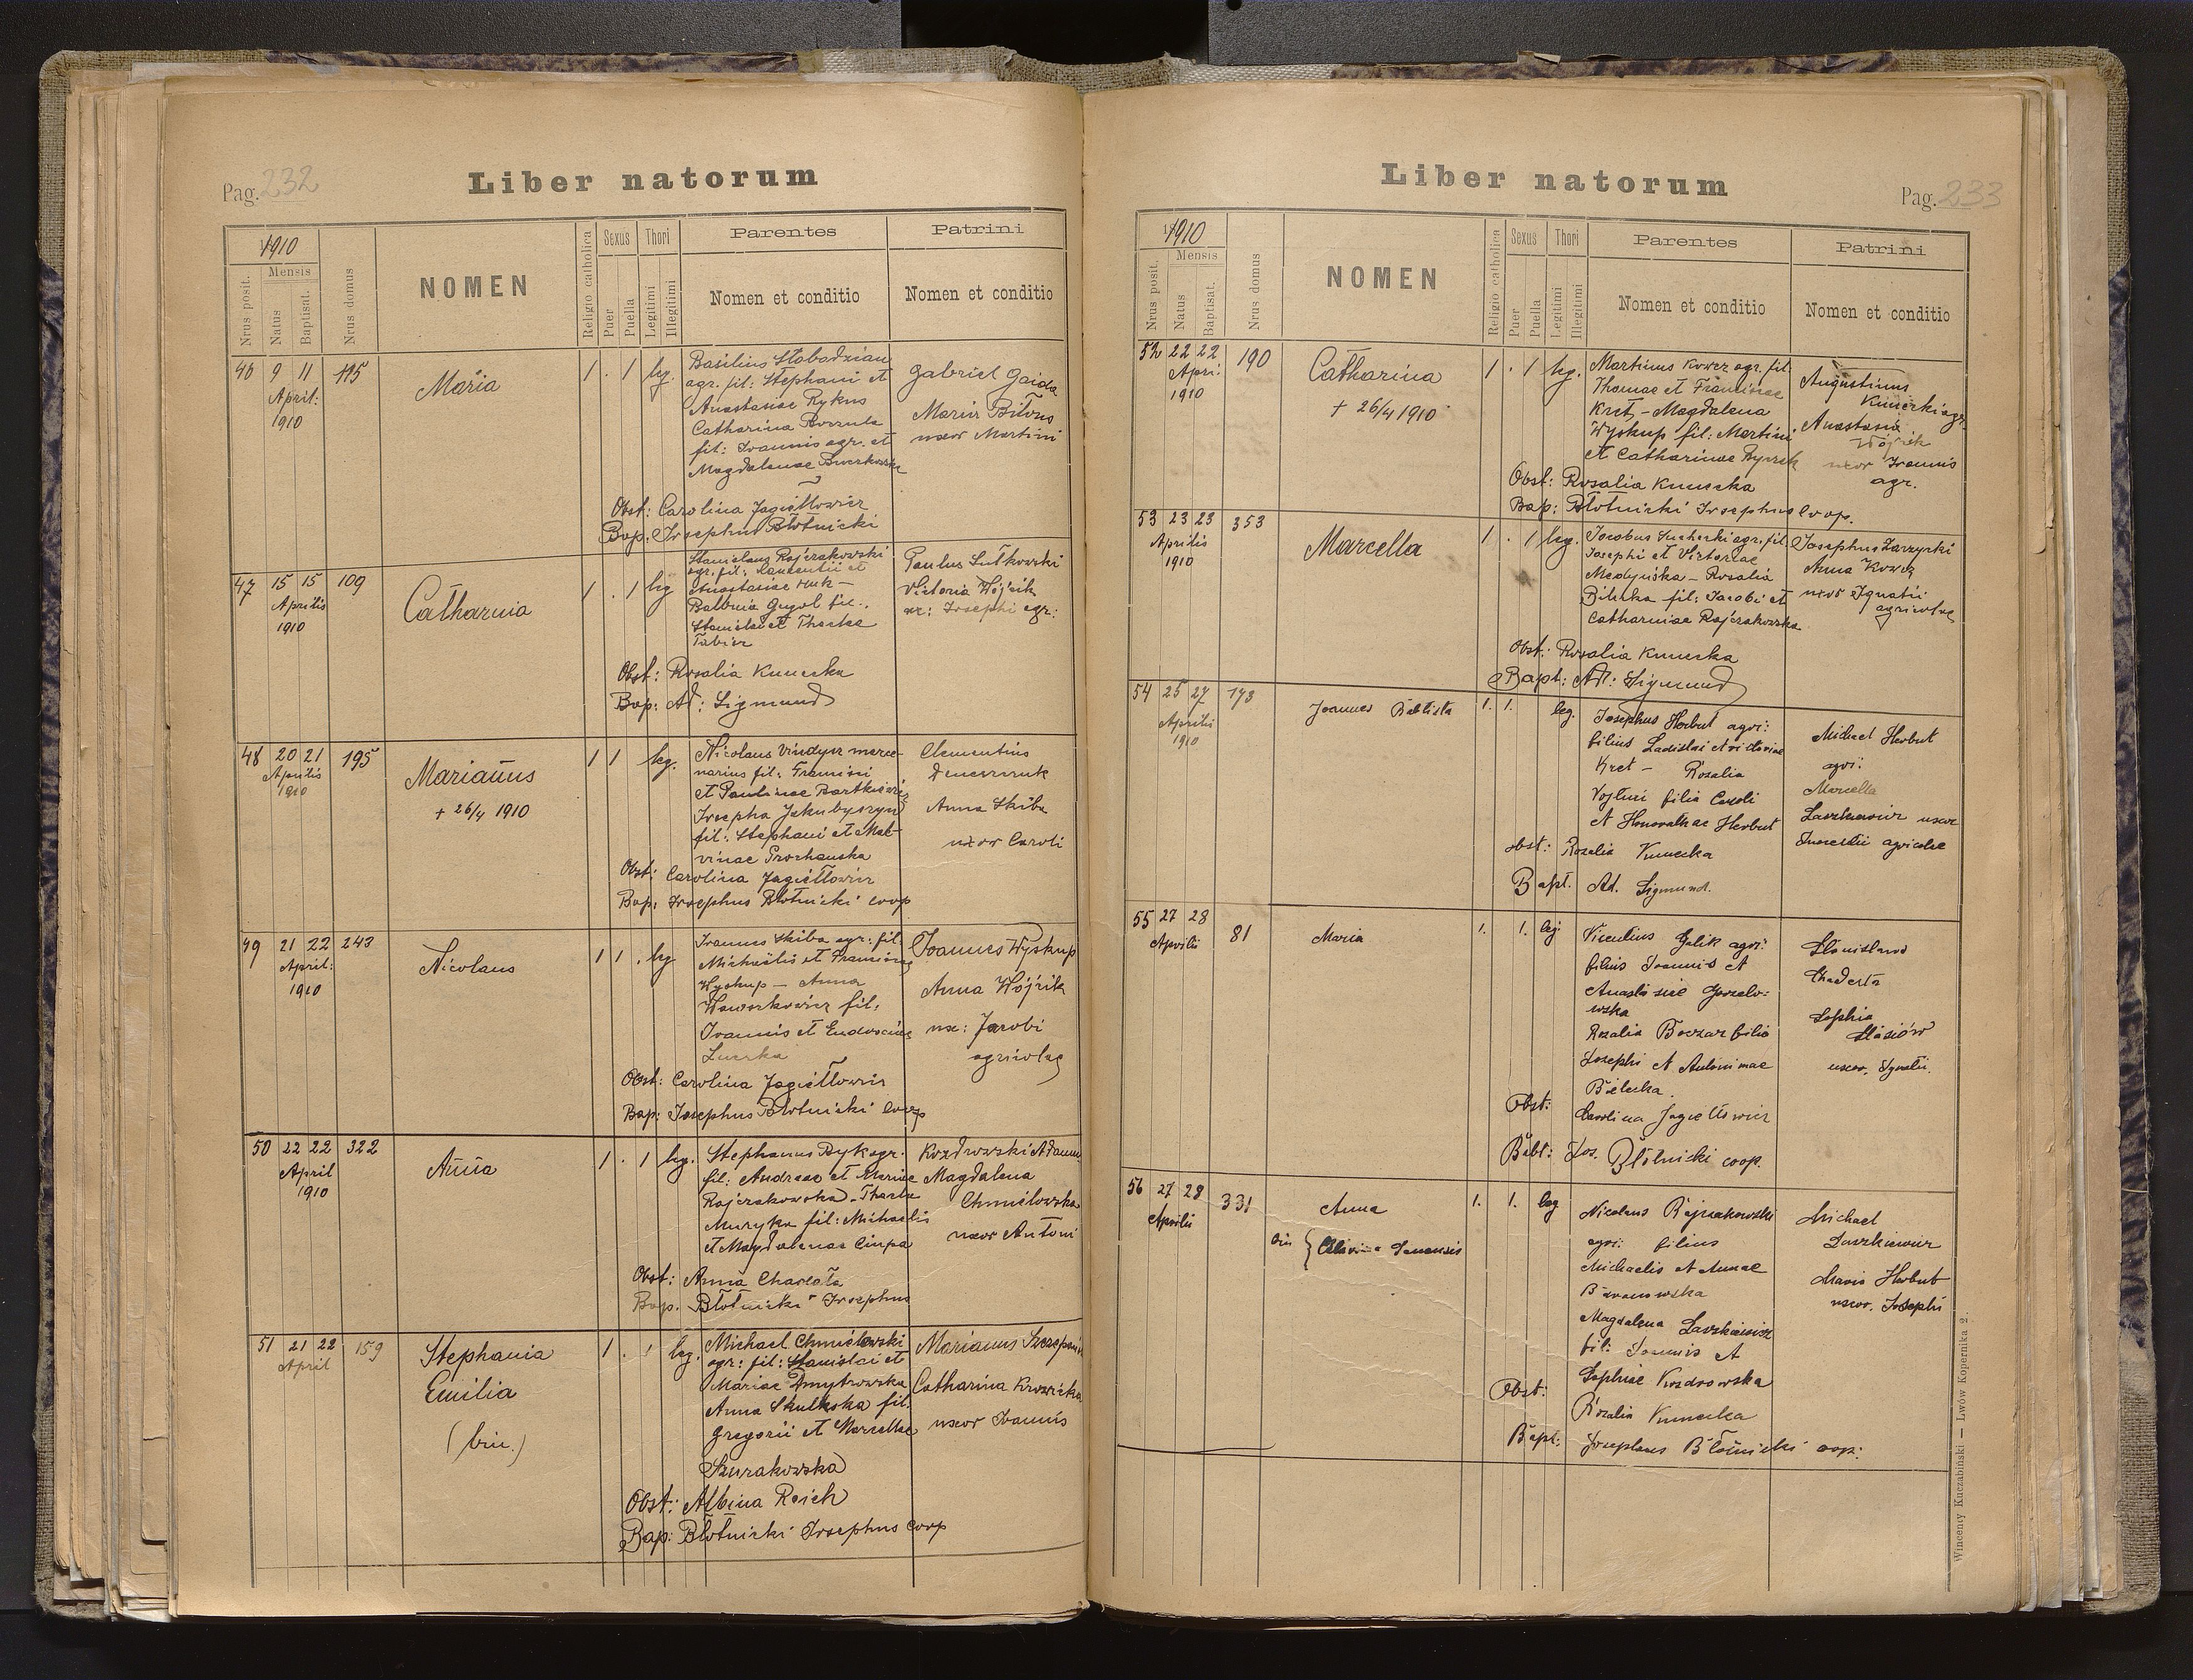 Pag. 232
Liber natorum
1910
Nrus posit.
Mensis
Natus
Baptisat.
Nrus domus
NOMEN
Religio catholica
Sexus
Puer
Puella
Thori
Legitimi
Illegitimi
Parentes
Nomen et conditio
Patrini
Nomen et conditio
46 9 11 195
April:
1910
Maria
1 . 1 leg.
Basilius
agr. fil: Stephani et
Anastasiae Rykus
Catharina
fil: Joannis agr. et
Magdalenae
Gabriel Gaida
Maria Bitous
uxor Martini
Obst: Carolina Jagiełłowicz
Bap: Josephus Błotnicki
47 15 15 109
Aprilis
1910
Catharina
1 . 1 leg
Stanislaus Rajczakowski
agr. fil: Laurentii et
Anastasiae Huk –
Balbina fil:
Stanislai et Thecla
Paulus Lutkowski
Victoria Wójcik
ux: Josephi agr:
Obst: Rosalia Kunecka
Bap: Ad: Sigmund
48 20 21 195
Aprilis
1910
Marianus
+ 26/4 1910
1 1 leg.
Nicolaus merce-
narius fil: Francisci
et Paulinae Bartkiewicz
Josepha Jakubyszyn
fil: Stephani et Mal-
vinae Prochauska
Clementius
Anna Skiba
uxor Caroli
Obst: Carolina Jagiełłowicz
Bap: Josephus Błotnicki coop
49 21 22 243
April:
1910
Nicolaus
1 1 . leg
Joannes Skiba agr: fil:
Michaëlis et Franciscae
Wyskup – Anna
fil:
Joannis et Eudoxiae
Joannes Wyskup
Anna Wójcik
ux: Jacobi
agricolae
Obst: Carolina Jagiełłowicz
Bap: Josephus Błotnicki coop
50 22 22 322
April
1910
Anna
1 . 1 leg.
Stephanus Byk agr.
fil: Andreae et Mariae
Rajczakowska – Thecla
Muryka fil: Michaelis
et Magdalenae Ciupa
Kozdrowski Adamus
Magdalena
Chmielowska
uxor Antoni
Obst: Anna Charlota
Bap. Błotnicki Josephus
51 21 22 159
April
Stephania
Emilia
(bin.)
1 . 1 leg.
Michael Chmielowski
agr: fil: Stanislai et
Mariae Dmytrowska
Anna Skulkska fil.
Gregorii et Marcellae
Szurakowska
Marianus Szczepanik
Catharina
uxor Joannis
Obst: Albina Reich
Bap: Błotnicki Josephus coop
Liber natorum
Pag. 233
1910
Nrus posit.
Mensis
Natus
Baptisat.
Nrus domus
NOMEN
Religio catholica
Sexus
Puer
Puella
Thori
Legitimi
Illegitimi
Parentes
Nomen et conditio
Patrini
Nomen et conditio
52 22 22 190
Apri.
1910
Catharina
+ 26/4 1910
1 . 1 leg.
Martinus Kowcz agr. fil.
Thomae et Franciscae
Kret – Magdalena
Wyskup fil: Martini
et Catharinae
Augustinus
Kunecki agr.
Anastasia
Wójcik
uxor Joannis
agr.
Obst: Rosalia Kunecka
Bap: Błotnicki Josephus coop.
53 23 23 353
Aprilis
1910
Marcella
1 . 1 leg.
Jacobus Suchecki agr. fil.
Josephi et Victoriae
Medyńska – Rosalia
Bilecka fil: Jacobi et
Catharinae Rajczakowska
Josephus Zarzycki
Anna Kowcz
uxor Ignatii
agricolae
Obst: Rosalia Kunecka
Bapt: Ad: Sigmund
54 25 27 173
Aprilis
1910
Joannes Babtista
1. 1. leg.
Josephus Herbut agri:
filius Ladislai et Victoriae
Kret – Rosalia
Wojturi filia Caroli
et Honorathae Herbut
Michael Herbut
agri:
Marcella
Laszkiewicz uxor
agricolae
obst: Rosalia Kunecka
Bapt. Ad. Sigmund.
55 27 28 81
Aprilis
Maria
1. 1. leg
Vicentius Galik agri:
filius Joannis et
Anastasiae
wska
Rosalia Boczar filia
Josephi et Antoninae
Bielecka.
Stanislaus
Sophia
Stasiów
uxor. Ignatii.
Obst: Carolina Jagiełłowicz
Babt: Jos. Błotnicki coop.
56 27 28 331
Aprilis
Anna
1. 1. leg
Nicolaus Rajczakowski
agri: filius
Michaelis et Annae
Baranowska
Magdalena Laszkiewicz
fil: Joannis et
Sophiae Kozdrowska
Michael
Laszkiewicz
Maria Herbut
uxor. Josephi
Obst: Rozalia Kunecka
Bapt: Josephus Błotnicki coop:
Wincenty Kuczabiński — Lwów Kopernika 2.